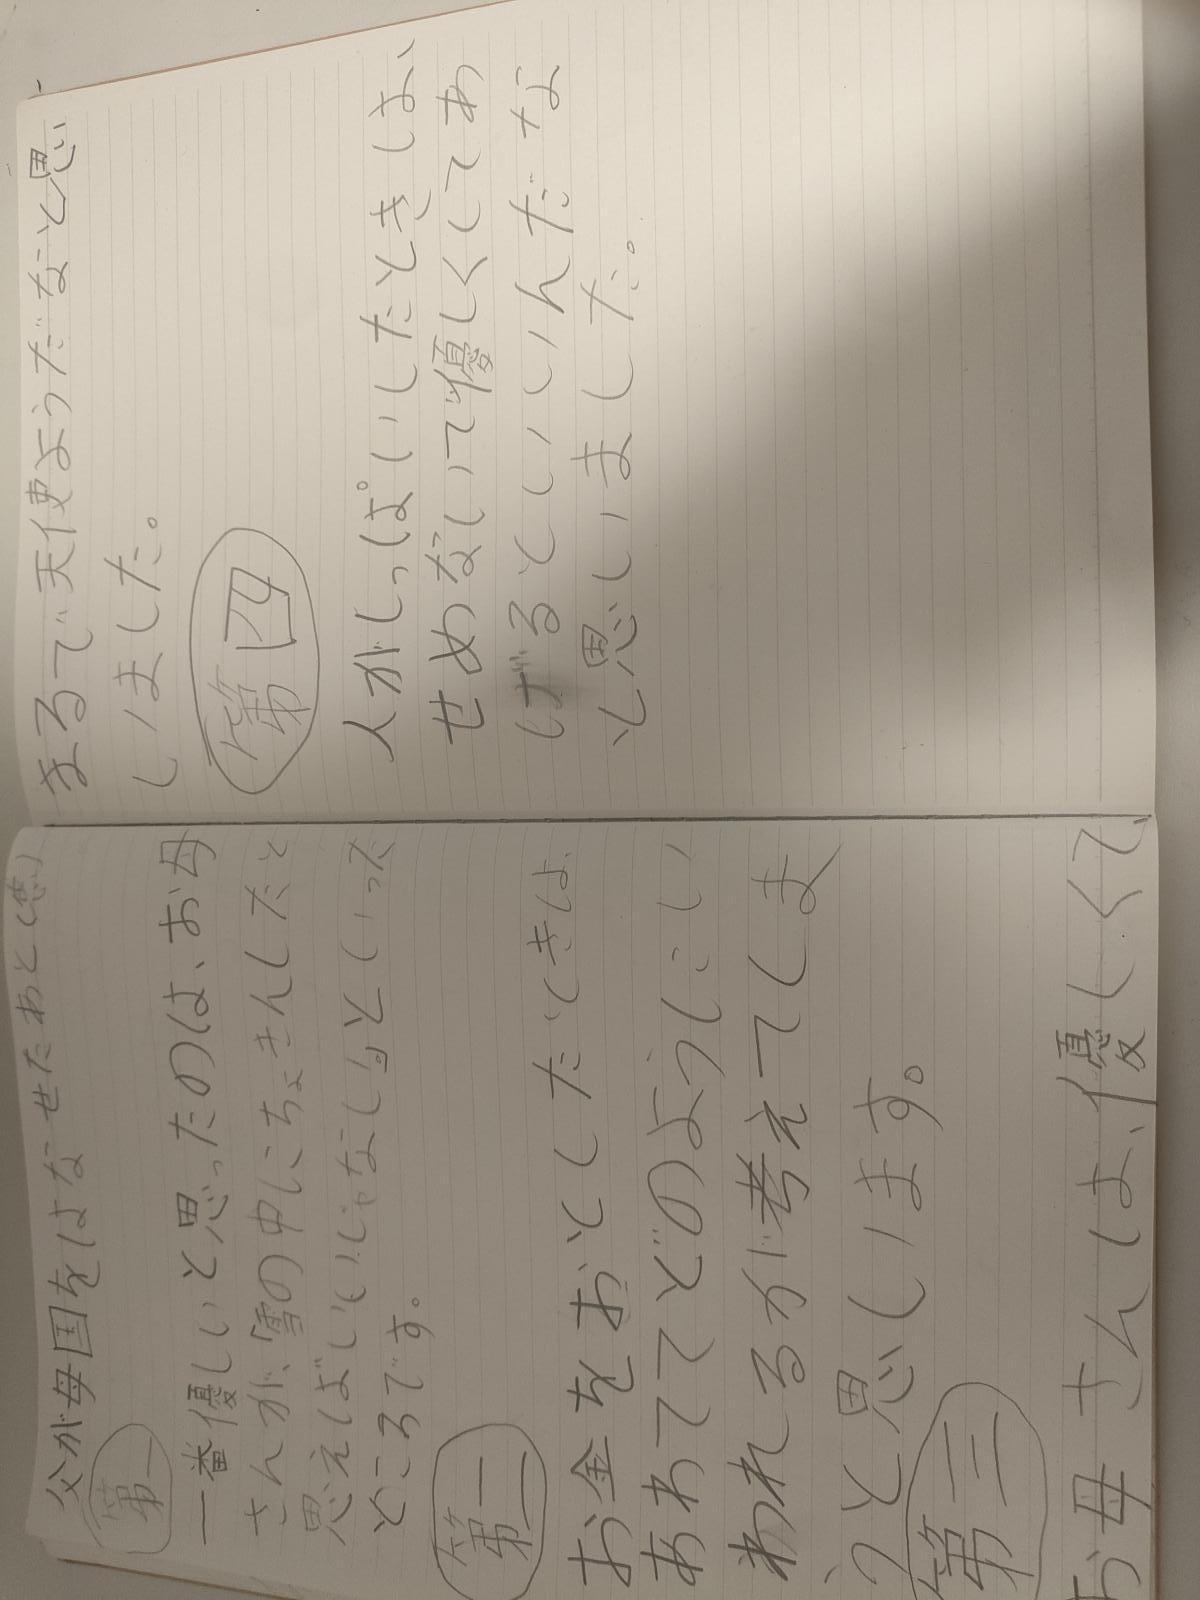 父が母国をはなせたあと(思)
第一
一番優しいと思ったのは、お母
さんが、「雪の中にちょきんしたと
思えばいいじゃなし」といった
ところです。
第二
お金をおとしただときは、
あわててどのようにい
われるかが考えてしま
うと思います。
第三
お母さんは、優しくて、
まるで天使ようだなと思
いました。
第四
人がしっぱいしたときは、
せめないで優しくしてあ
げるといいんだな
と思いました。